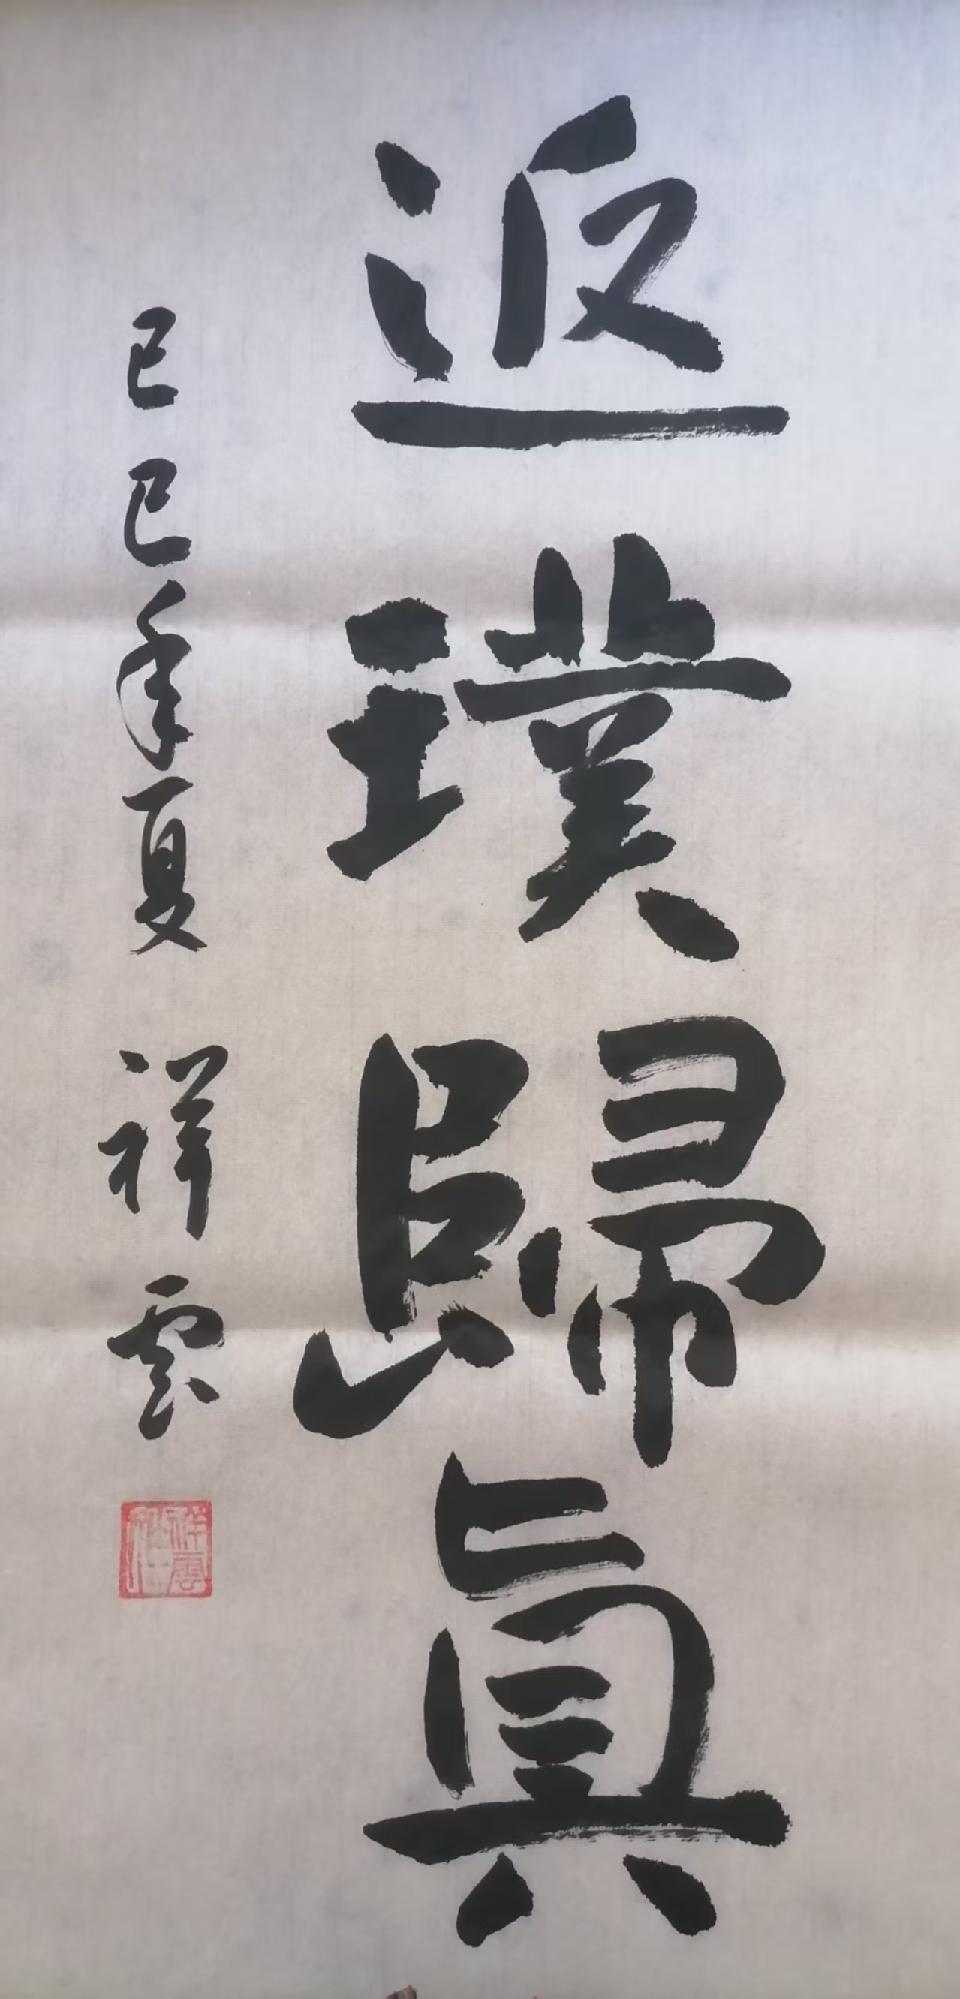 返璞歸真
己巳年夏 祥雲